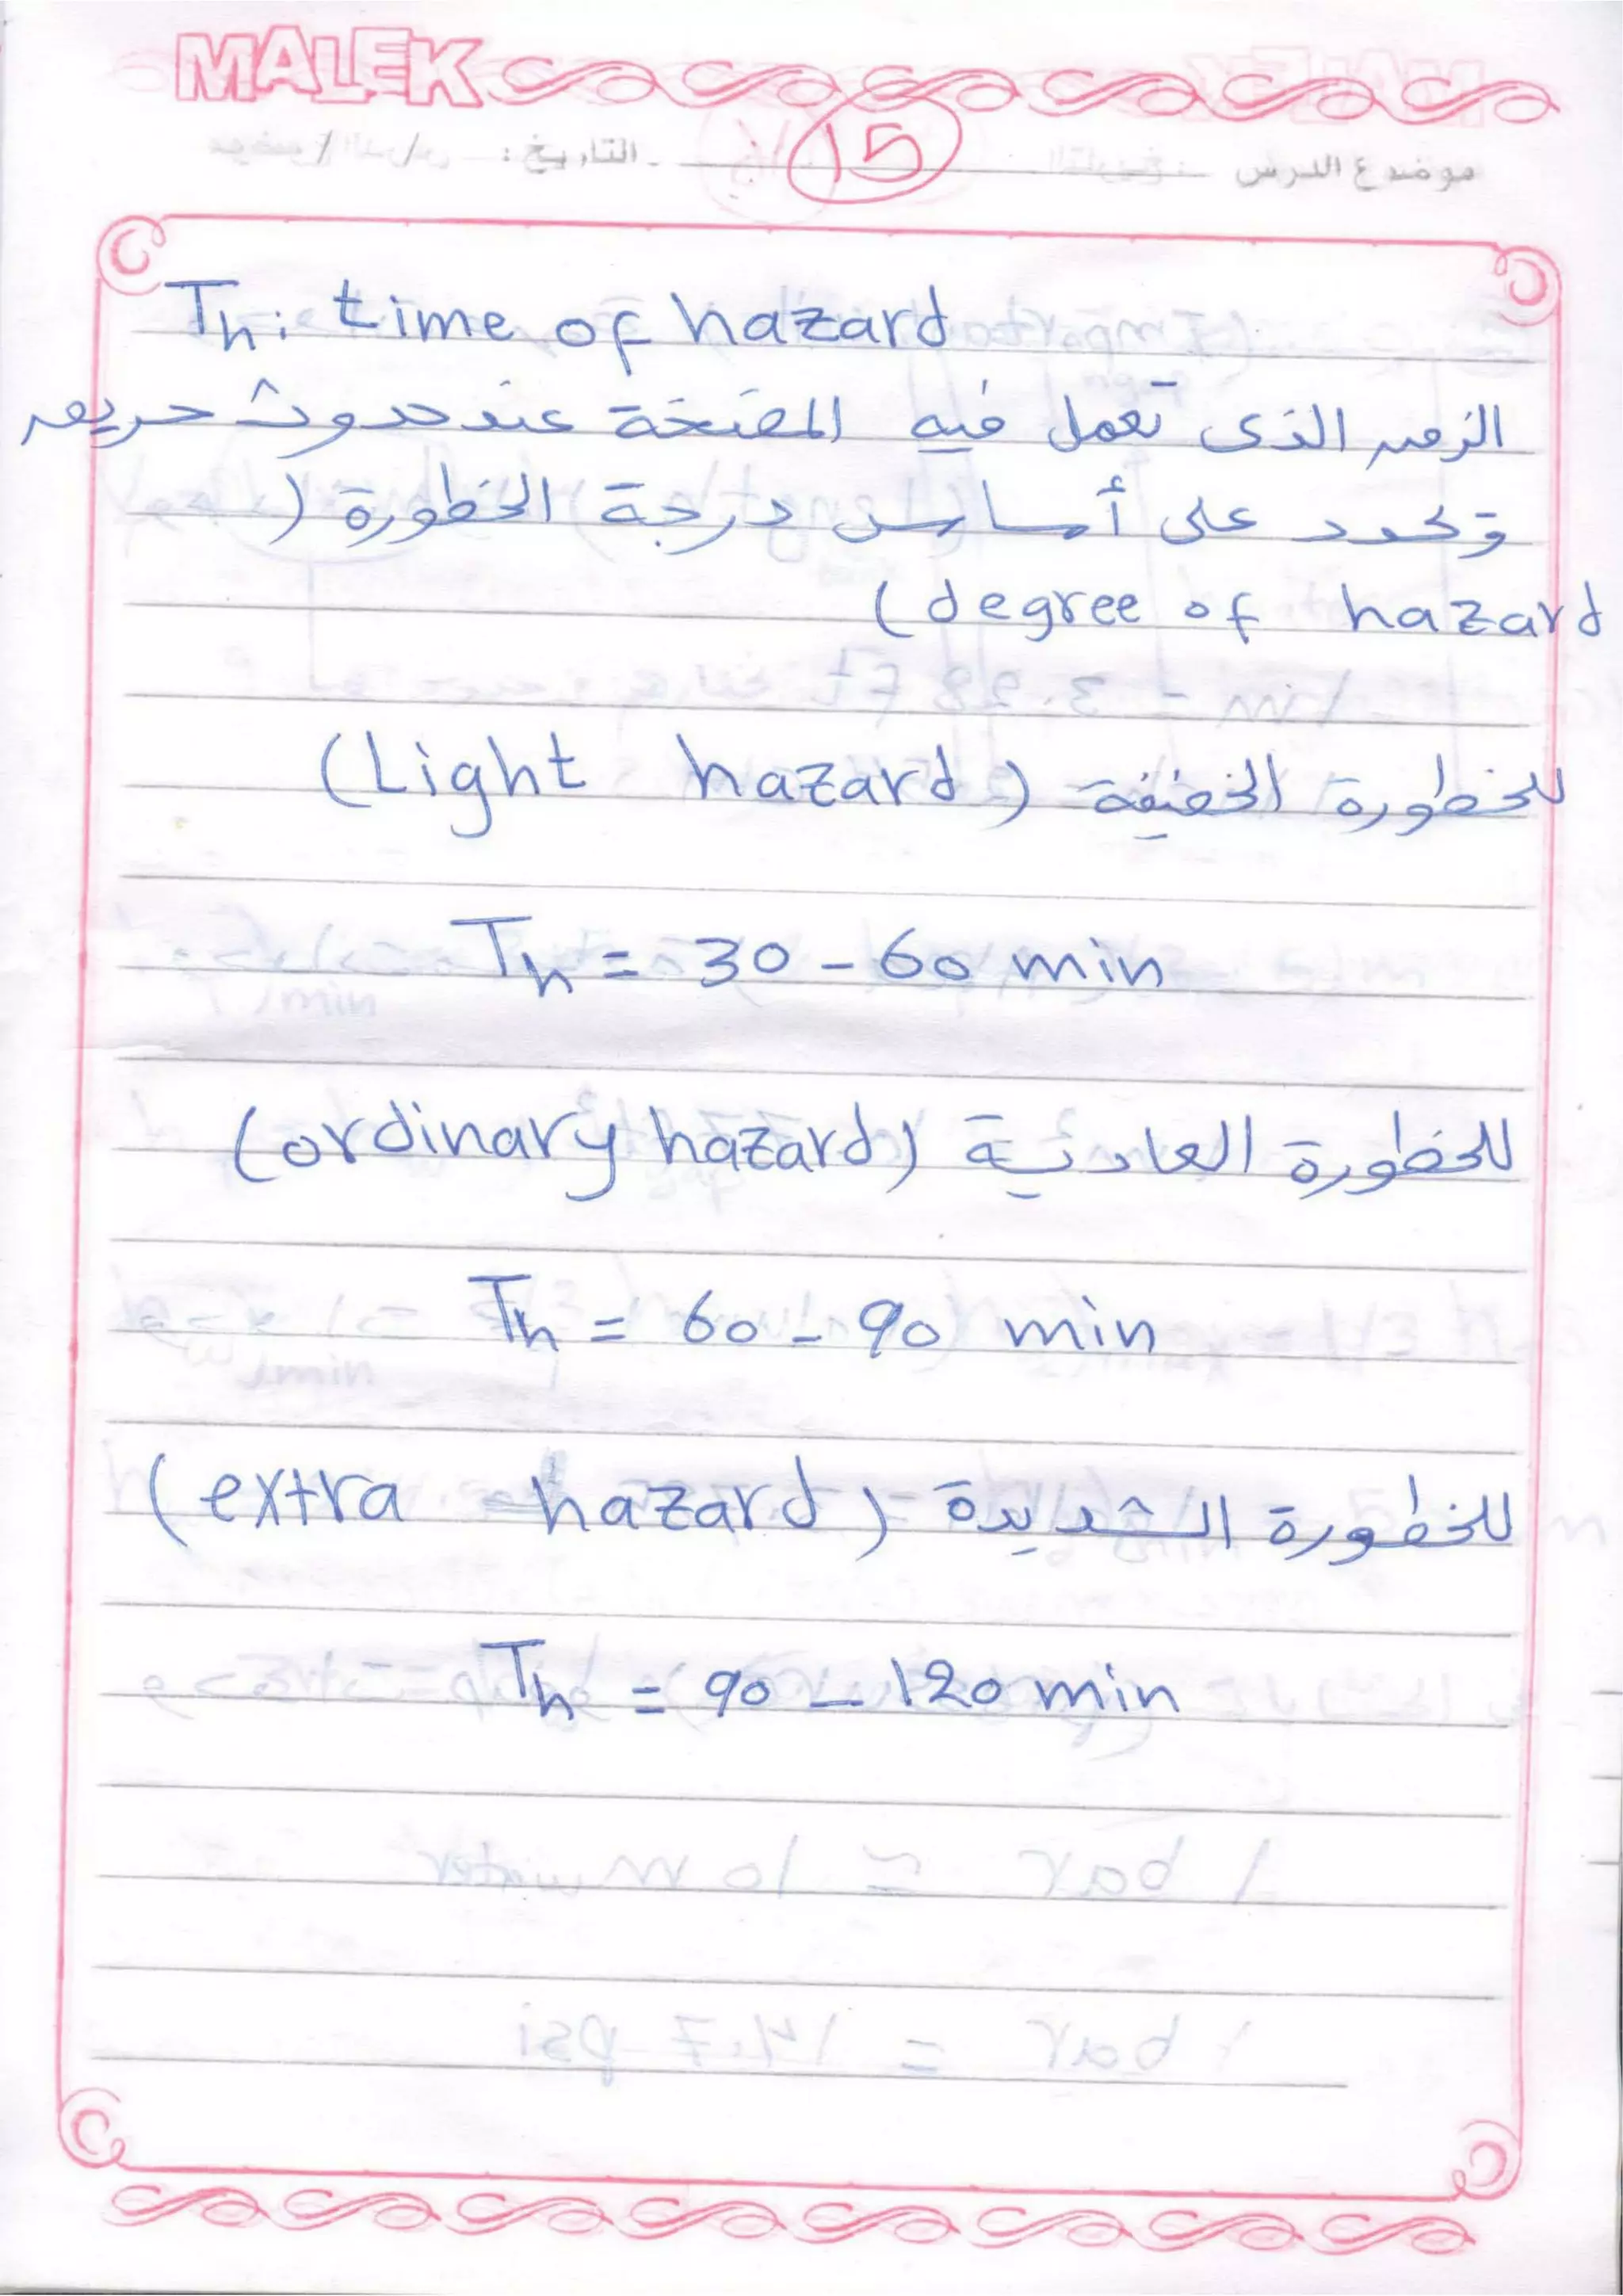 MALEK
موضوع الدرس : التاريخ : / /
15
Th: time of hazard
الزمن الذى تعمل فيه المضخة عند حدوث حريق
وتحدد على أساس درجة الخطورة (
(degree of hazard
للخطورة الخفيفة (Light hazard)
Th = 30 - 60 min
للخطورة العادية (ordinary hazard)
Th = 60 - 90 min
للخطورة الشديدة (extra hazard)
Th = 90 - 120 min